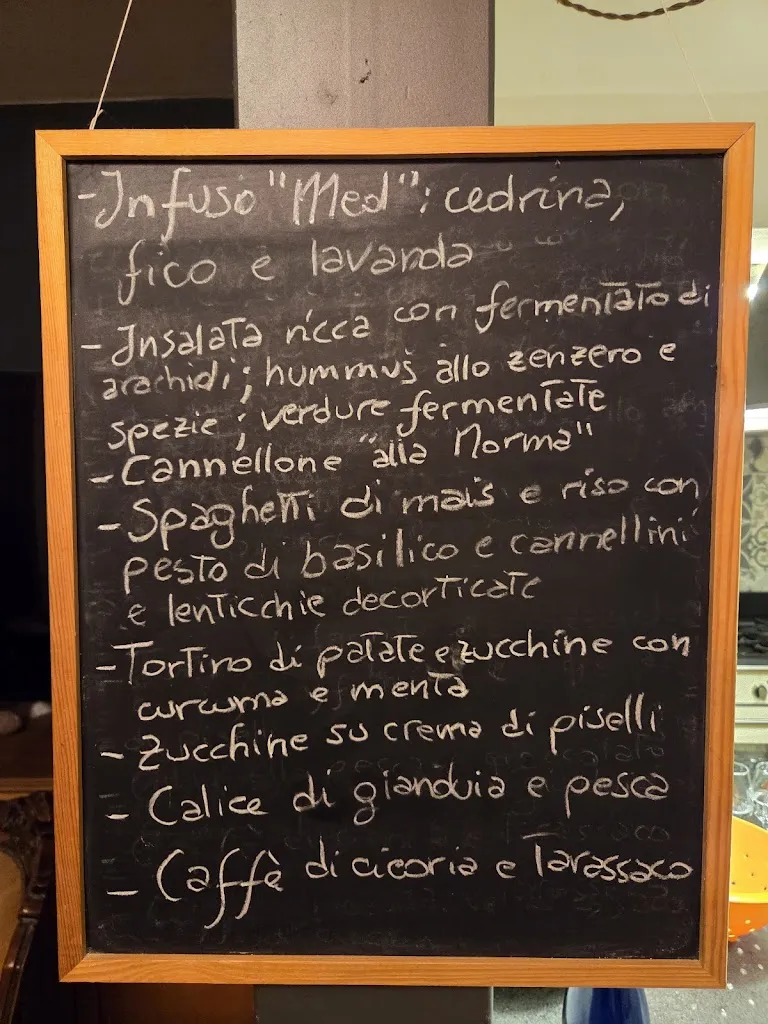 - Infuso "Med": cedrina,
fico e lavanda
- Insalata ricca con fermentato di
arachidi; hummus allo zenzero e
spezie; verdure fermentate
- Cannellone "alla Norma"
- Spaghetti di mais e riso con
pesto di basilico e cannellini
e lenticchie decorticate
- Tortino di patate e zucchine con
curcuma e menta
- Zucchine su crema di piselli
- Calice di gianduia e pesca
- Caffè di cicoria e Tarassaco